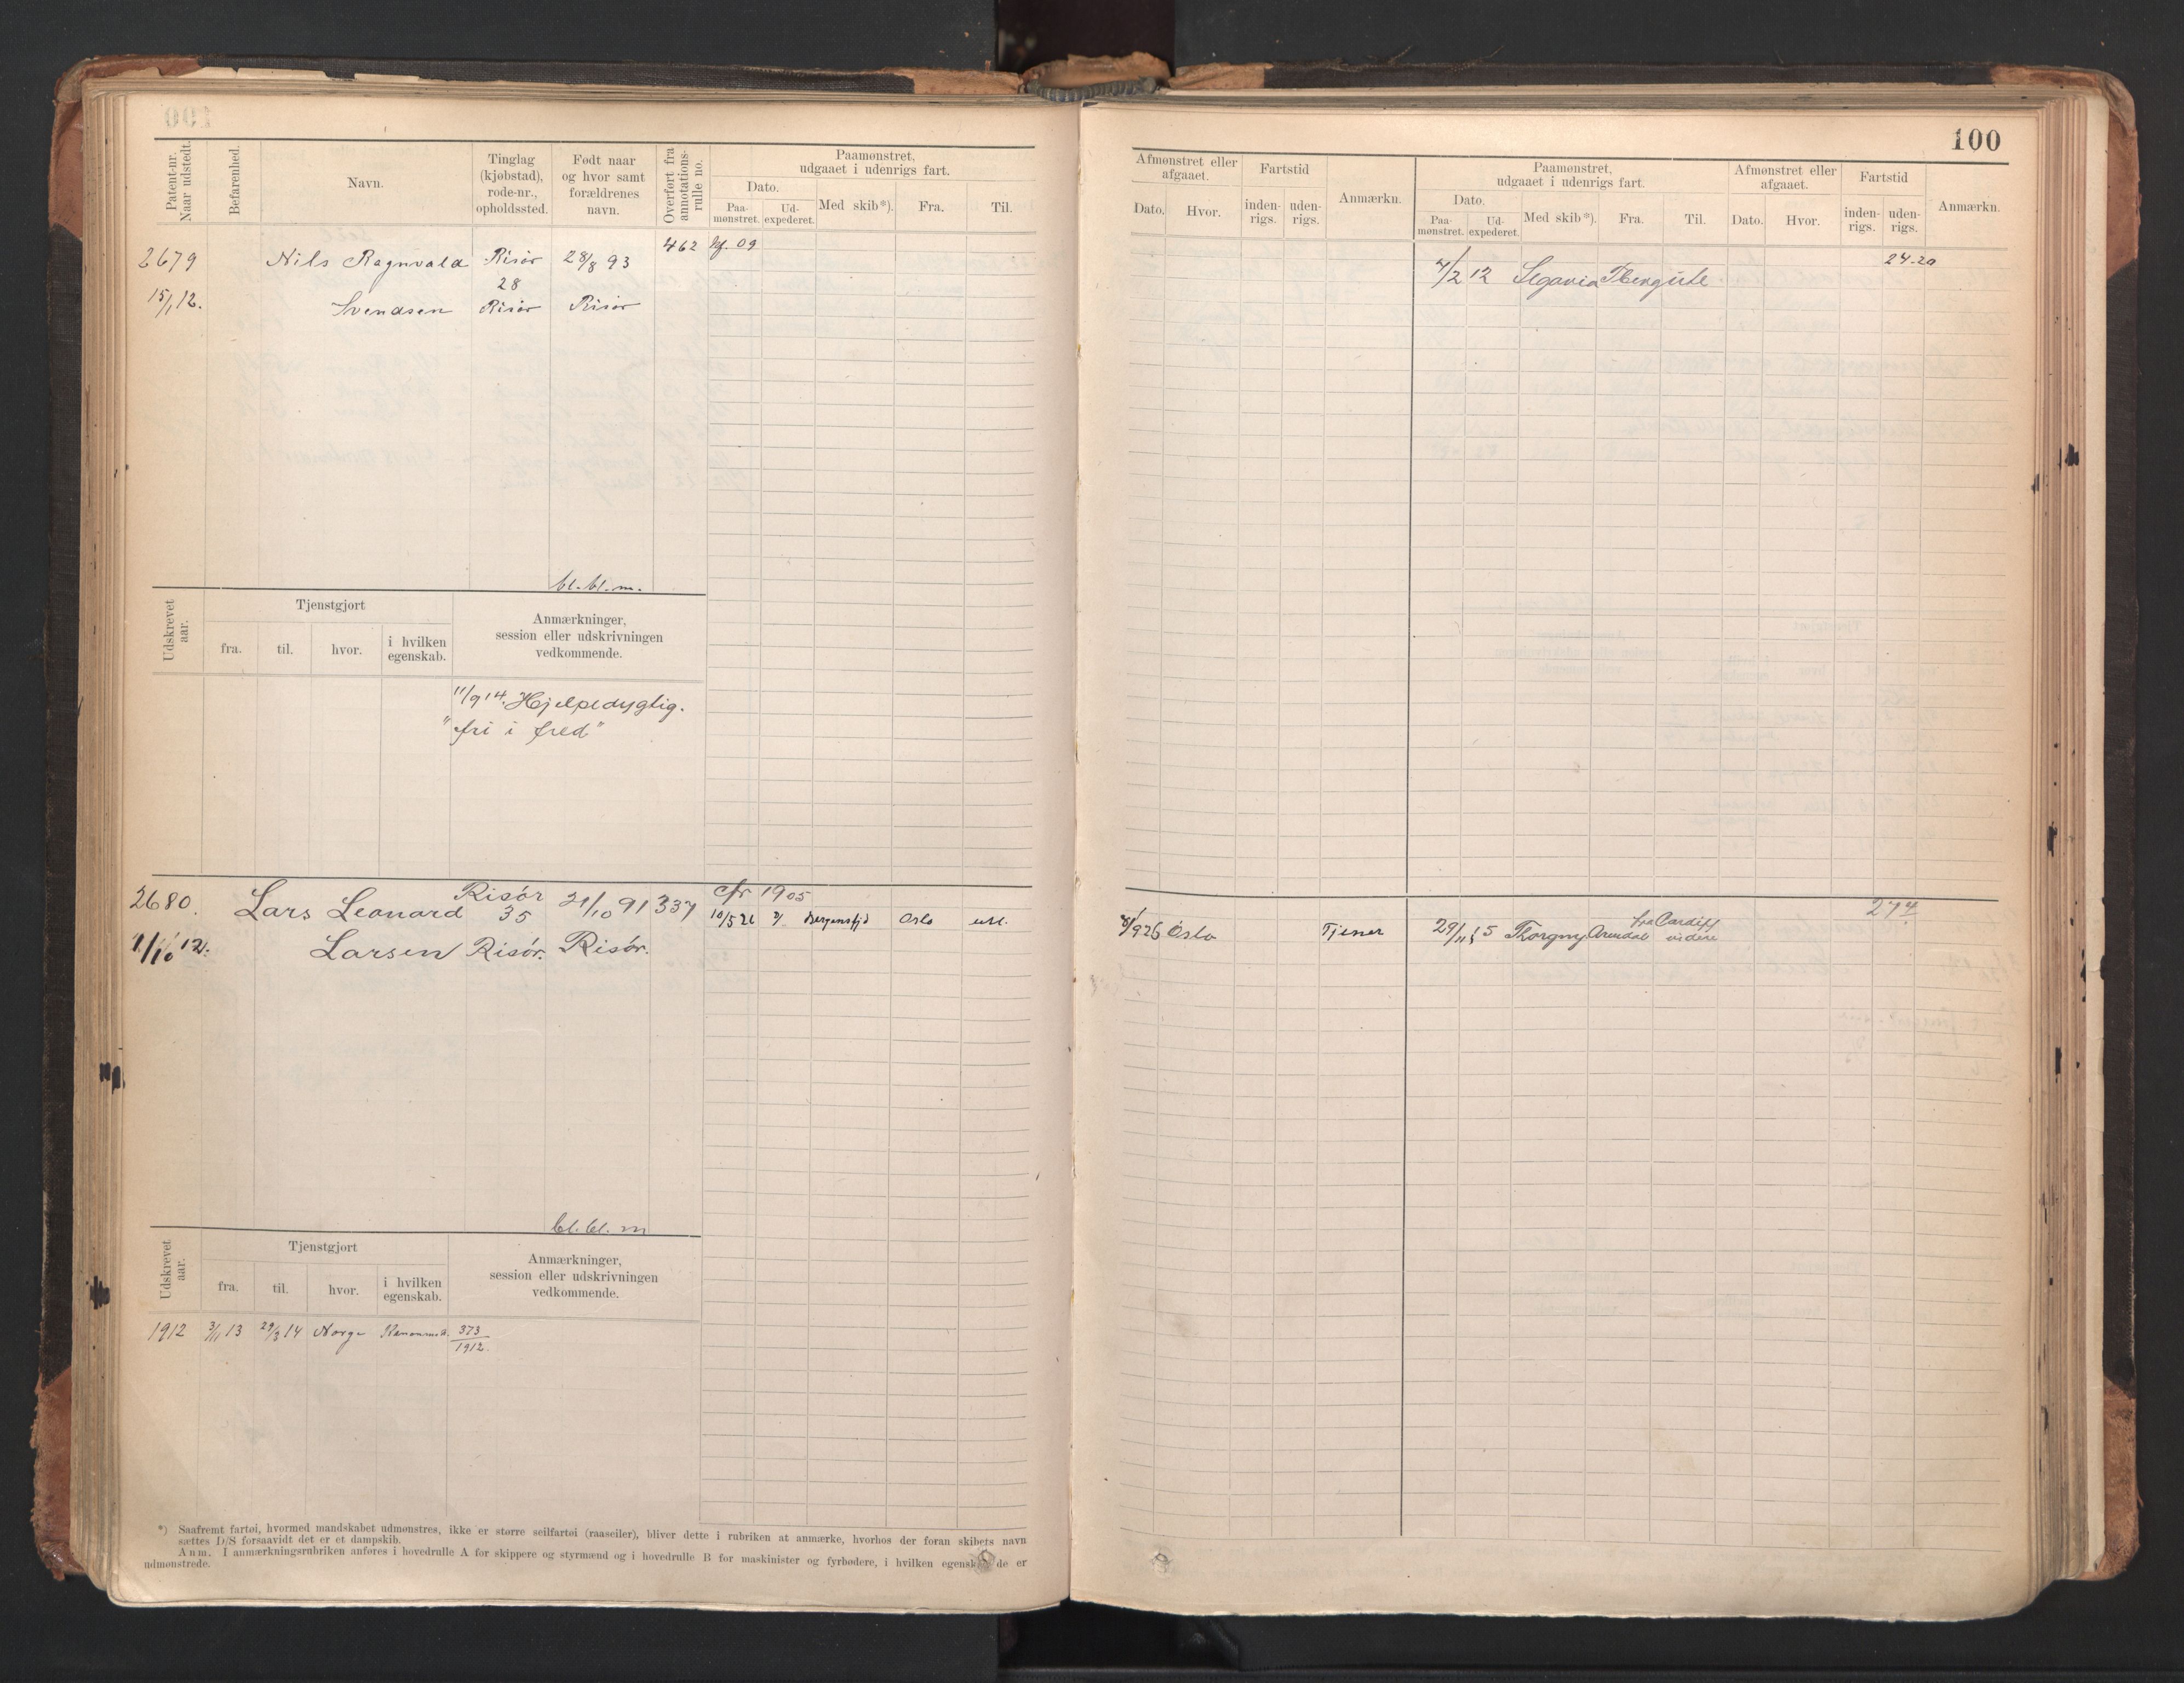 100
Patent-nr. Naar udstedt.
Befarenhed.
Navn.
Tinglag (kjøbstad), rode-nr., opholdssted.
Født naar og hvor samt forældrenes navn.
Overført fra annotations-rulle no.
Paamønstret, udgaaet i udenrigs fart.
Dato.
Paa-mønstret.
Ud-expederet.
Med skib*).
Fra.
Til.
2679 Nils Ragnvald Risør 28/8 93 462 09
28
15/1 12. Svendsen Risør Risør
bl. bl. m.
Udskrevet aar.
Tjenstgjort
fra.
til.
hvor.
i hvilken egenskab.
Anmærkninger, session eller udskrivningen vedkommende.
11/9 14. Hjelpedygtig.
"fri i fred"
2680. Lars Leonard Risör 35 21/10 91 337 cfr 1905
10/5 26 Bergensfjd Oslo utl.
1/10 12. Larsen Risör. Risör.
bl. bl. m
Udskrevet aar.
Tjenstgjort
fra.
til.
hvor.
i hvilken egenskab.
Anmærkninger, session eller udskrivningen vedkommende.
1912 3/11 13 29/3 14 Norge 373
1912.
*) Saafremt fartøi, hvormed mandskabet udmønstres, ikke er større seilfartøi (raaseiler), bliver dette i rubriken at anmærke, hvorhos der foran skibets navn
sættes D/S forsaavidt det er et dampskib.
Anm. I anmærkningsrubriken anføres i hovedrulle A for skippere og styrmænd og i hovedrulle B for maskinister og fyrbødere, i hvilken egenskab de er
udmønstrede.
100
Afmønstret eller afgaaet.
Dato.
Hvor.
Fartstid
inden-rigs.
uden-rigs.
Anmærkn.
Paamønstret, udgaaet i udenrigs fart.
Dato.
Paa-mønstret.
Ud-expederet.
Med skib*).
Fra.
Til.
Afmønstret eller afgaaet.
Dato.
Hvor.
Fartstid
inden-rigs.
uden-rigs.
Anmærkn.
24-20
/2 12 Segovia
27
/9 26 Oslo Tjener 29/11 15 Thorgny Arendal fra Cardiff
videre